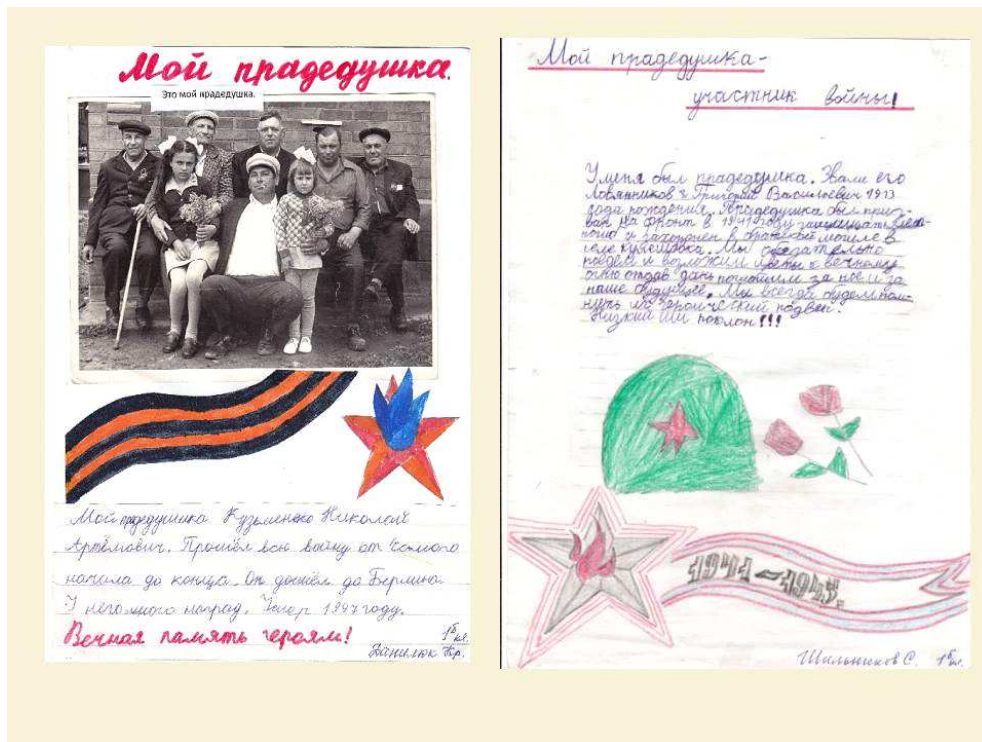 Мой прадедушка.
Это мой прадедушка.
Мой прадедушка Кузьменко Николай
Артёмович. Прошёл всю войну от самого
начала до конца. Он дошёл до Берлина.
У него много наград. Умер 1997 году.
Вечная память героям!
1б кл.
Данелюк Кр.
Мой прадедушка-
участник войны!
У меня был прадедушка. Звали его
Григорий Васильевич 1913
года рождения. Прадедушка был приз-
ван на фронт в 1941 году
и захоронен в братской могиле в
селе Кулешовка. Мы обязательно
поедем и возложим цветы к вечному
огню отдав дань погибшим за нас и за
наше будущее. Мы всегда будем пом-
нить их героический подвег.
Низкий им поклон!!!
1941-1945.
Шильников С. 1б кл.